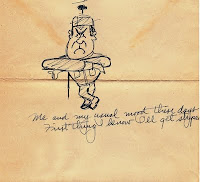 Me and my usual mood these days
First thing I know I'll get stripes